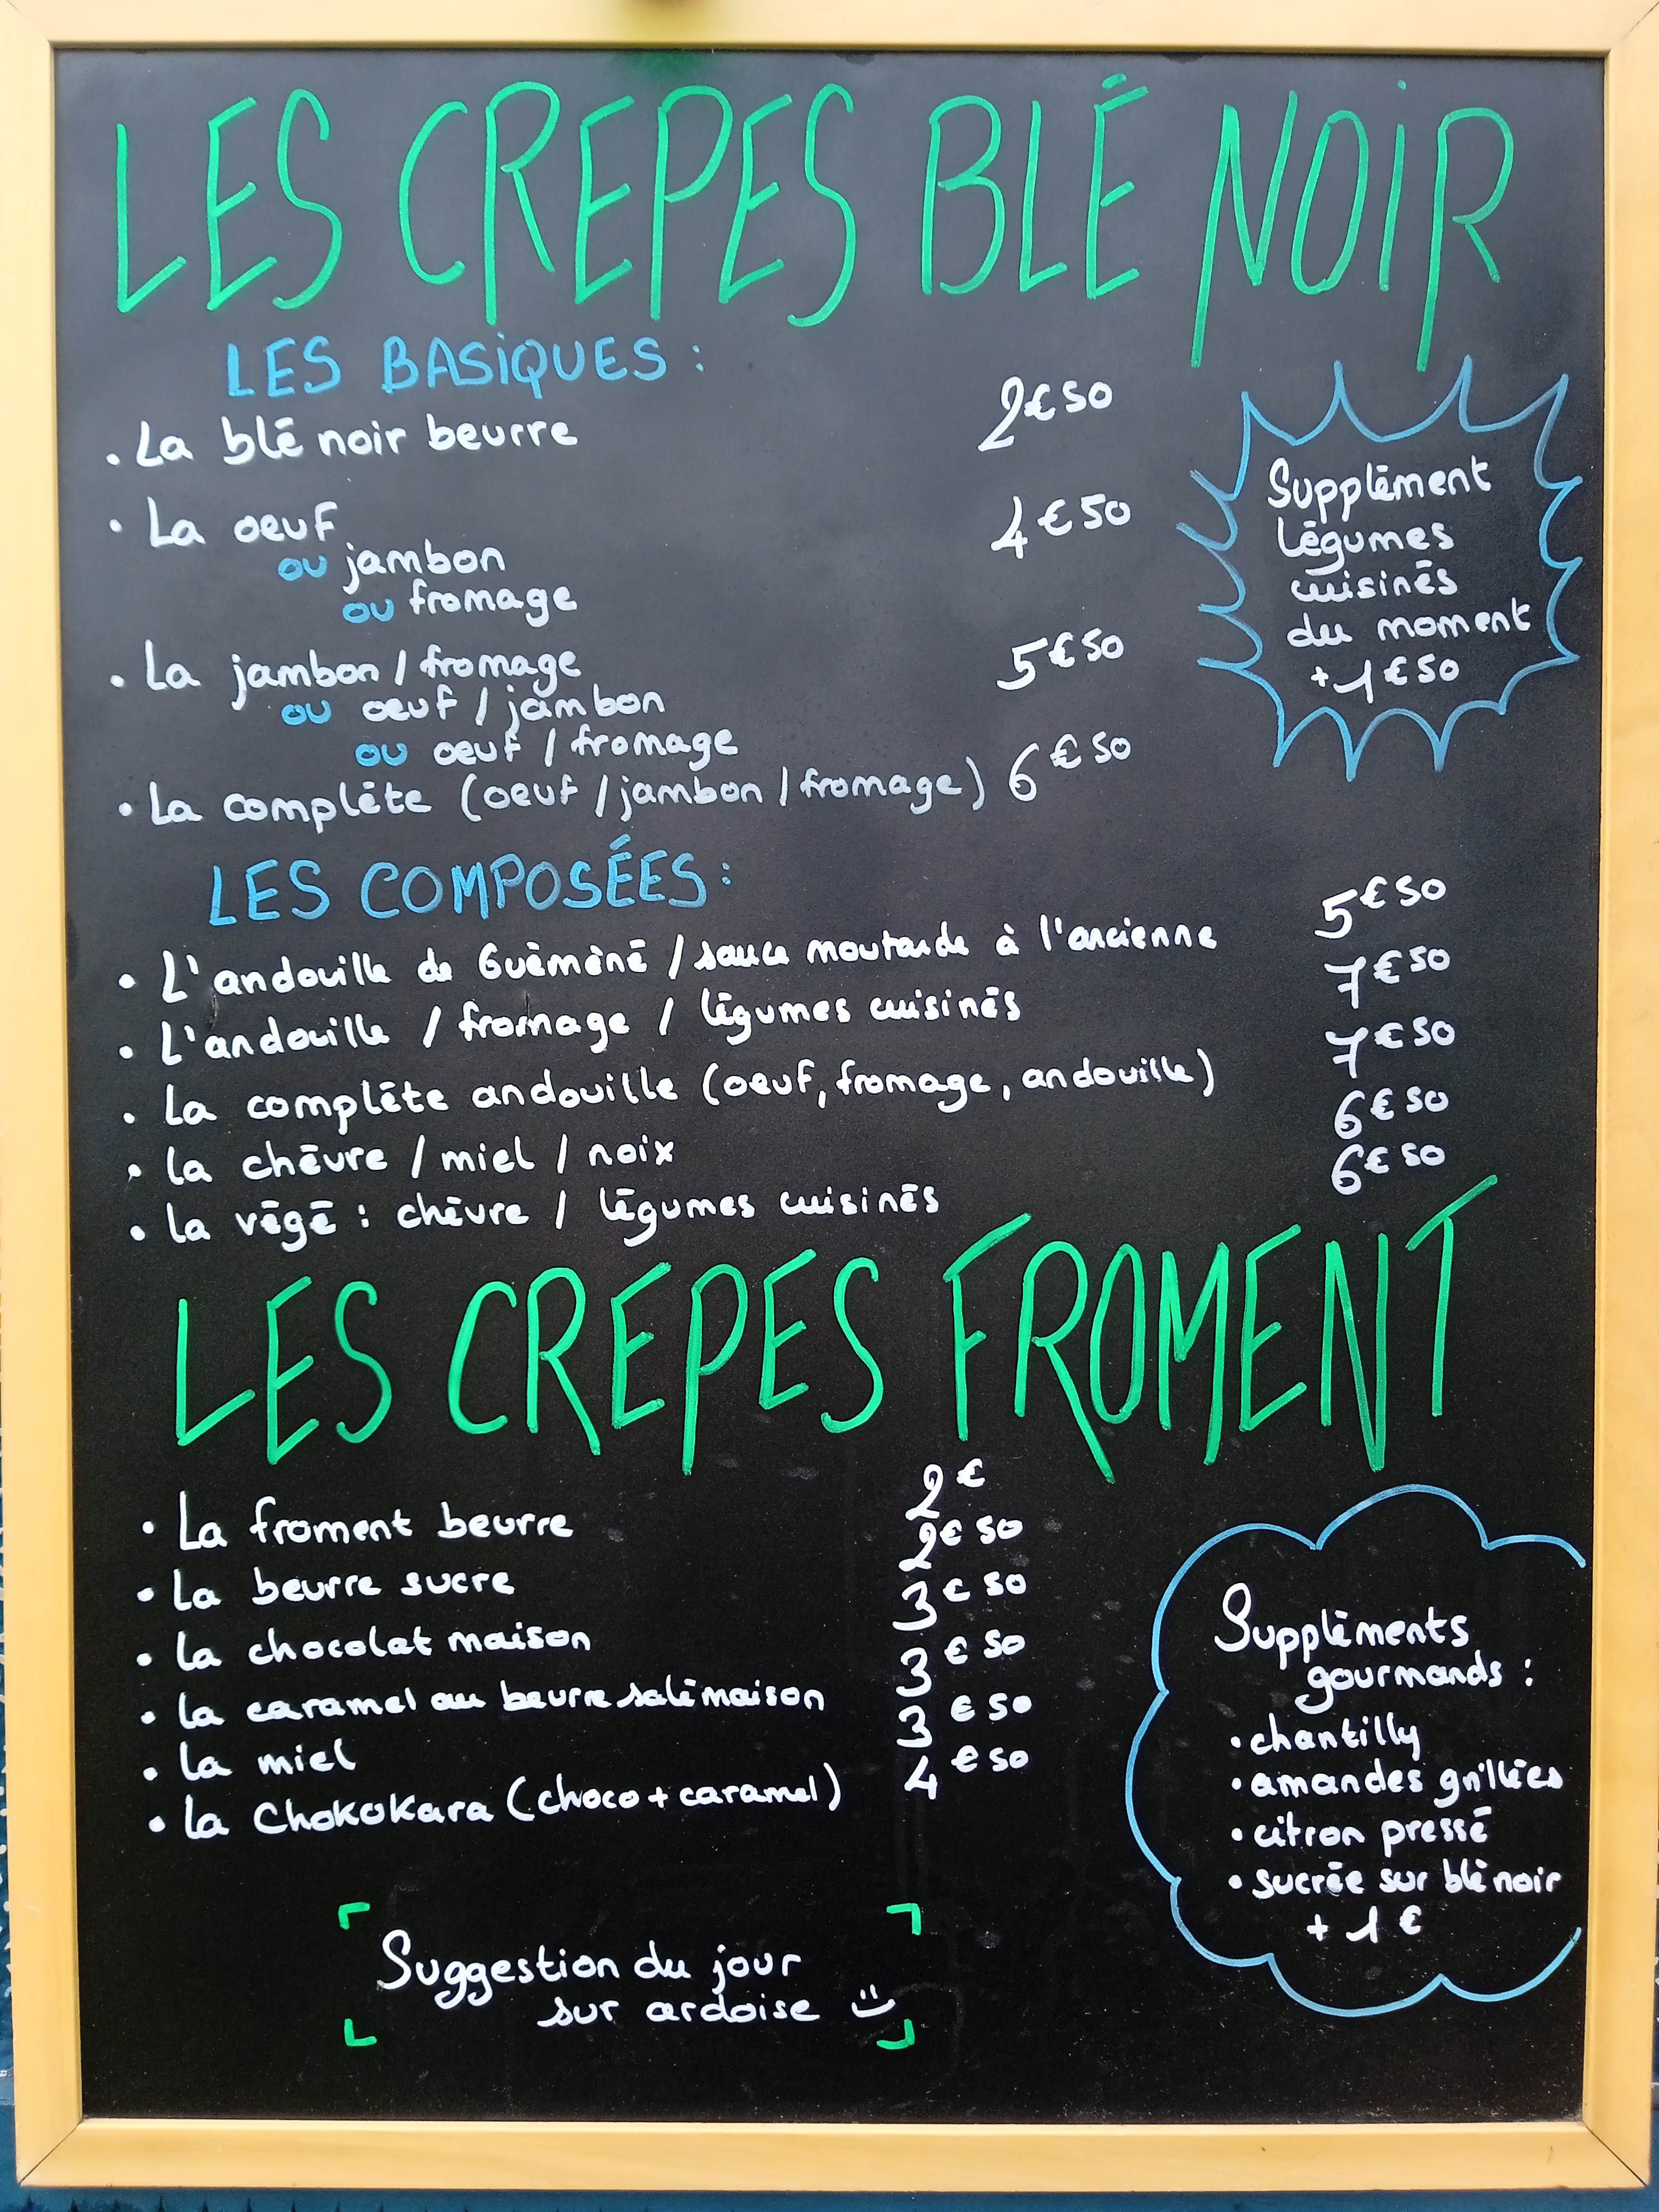 LES CREPES BLÉ NOIR
LES BASIQUES :
• La blé noir beurre 2€50
• La oeuf 4€50
ou jambon
ou fromage
• La jambon / fromage 5€50
ou oeuf / jambon
ou oeuf / fromage
• La complète (oeuf / jambon / fromage) 6€50
Supplément
légumes
cuisinés
du moment
+ 1€50
LES COMPOSÉES :
• L'andouille de Guèmèné / sauce moutarde à l'ancienne 5€50
• L'andouille / fromage / légumes cuisinés 7€50
• La complète andouille (oeuf, fromage, andouille) 7€50
• la chèvre / miel / noix 6€50
• la végé : chèvre / légumes cuisinés 6€50
LES CREPES FROMENT
• La froment beurre 2€
• La beurre sucre 2€50
• la chocolat maison 3€50
• la caramel au beurre salé maison 3€50
• la miel 3€50
• la Chokokara (choco + caramel) 4€50
Suppléments
gourmands :
• chantilly
• amandes grillées
• citron pressé
• sucrée sur blé noir
+ 1€
Suggestion du jour
sur ardoise